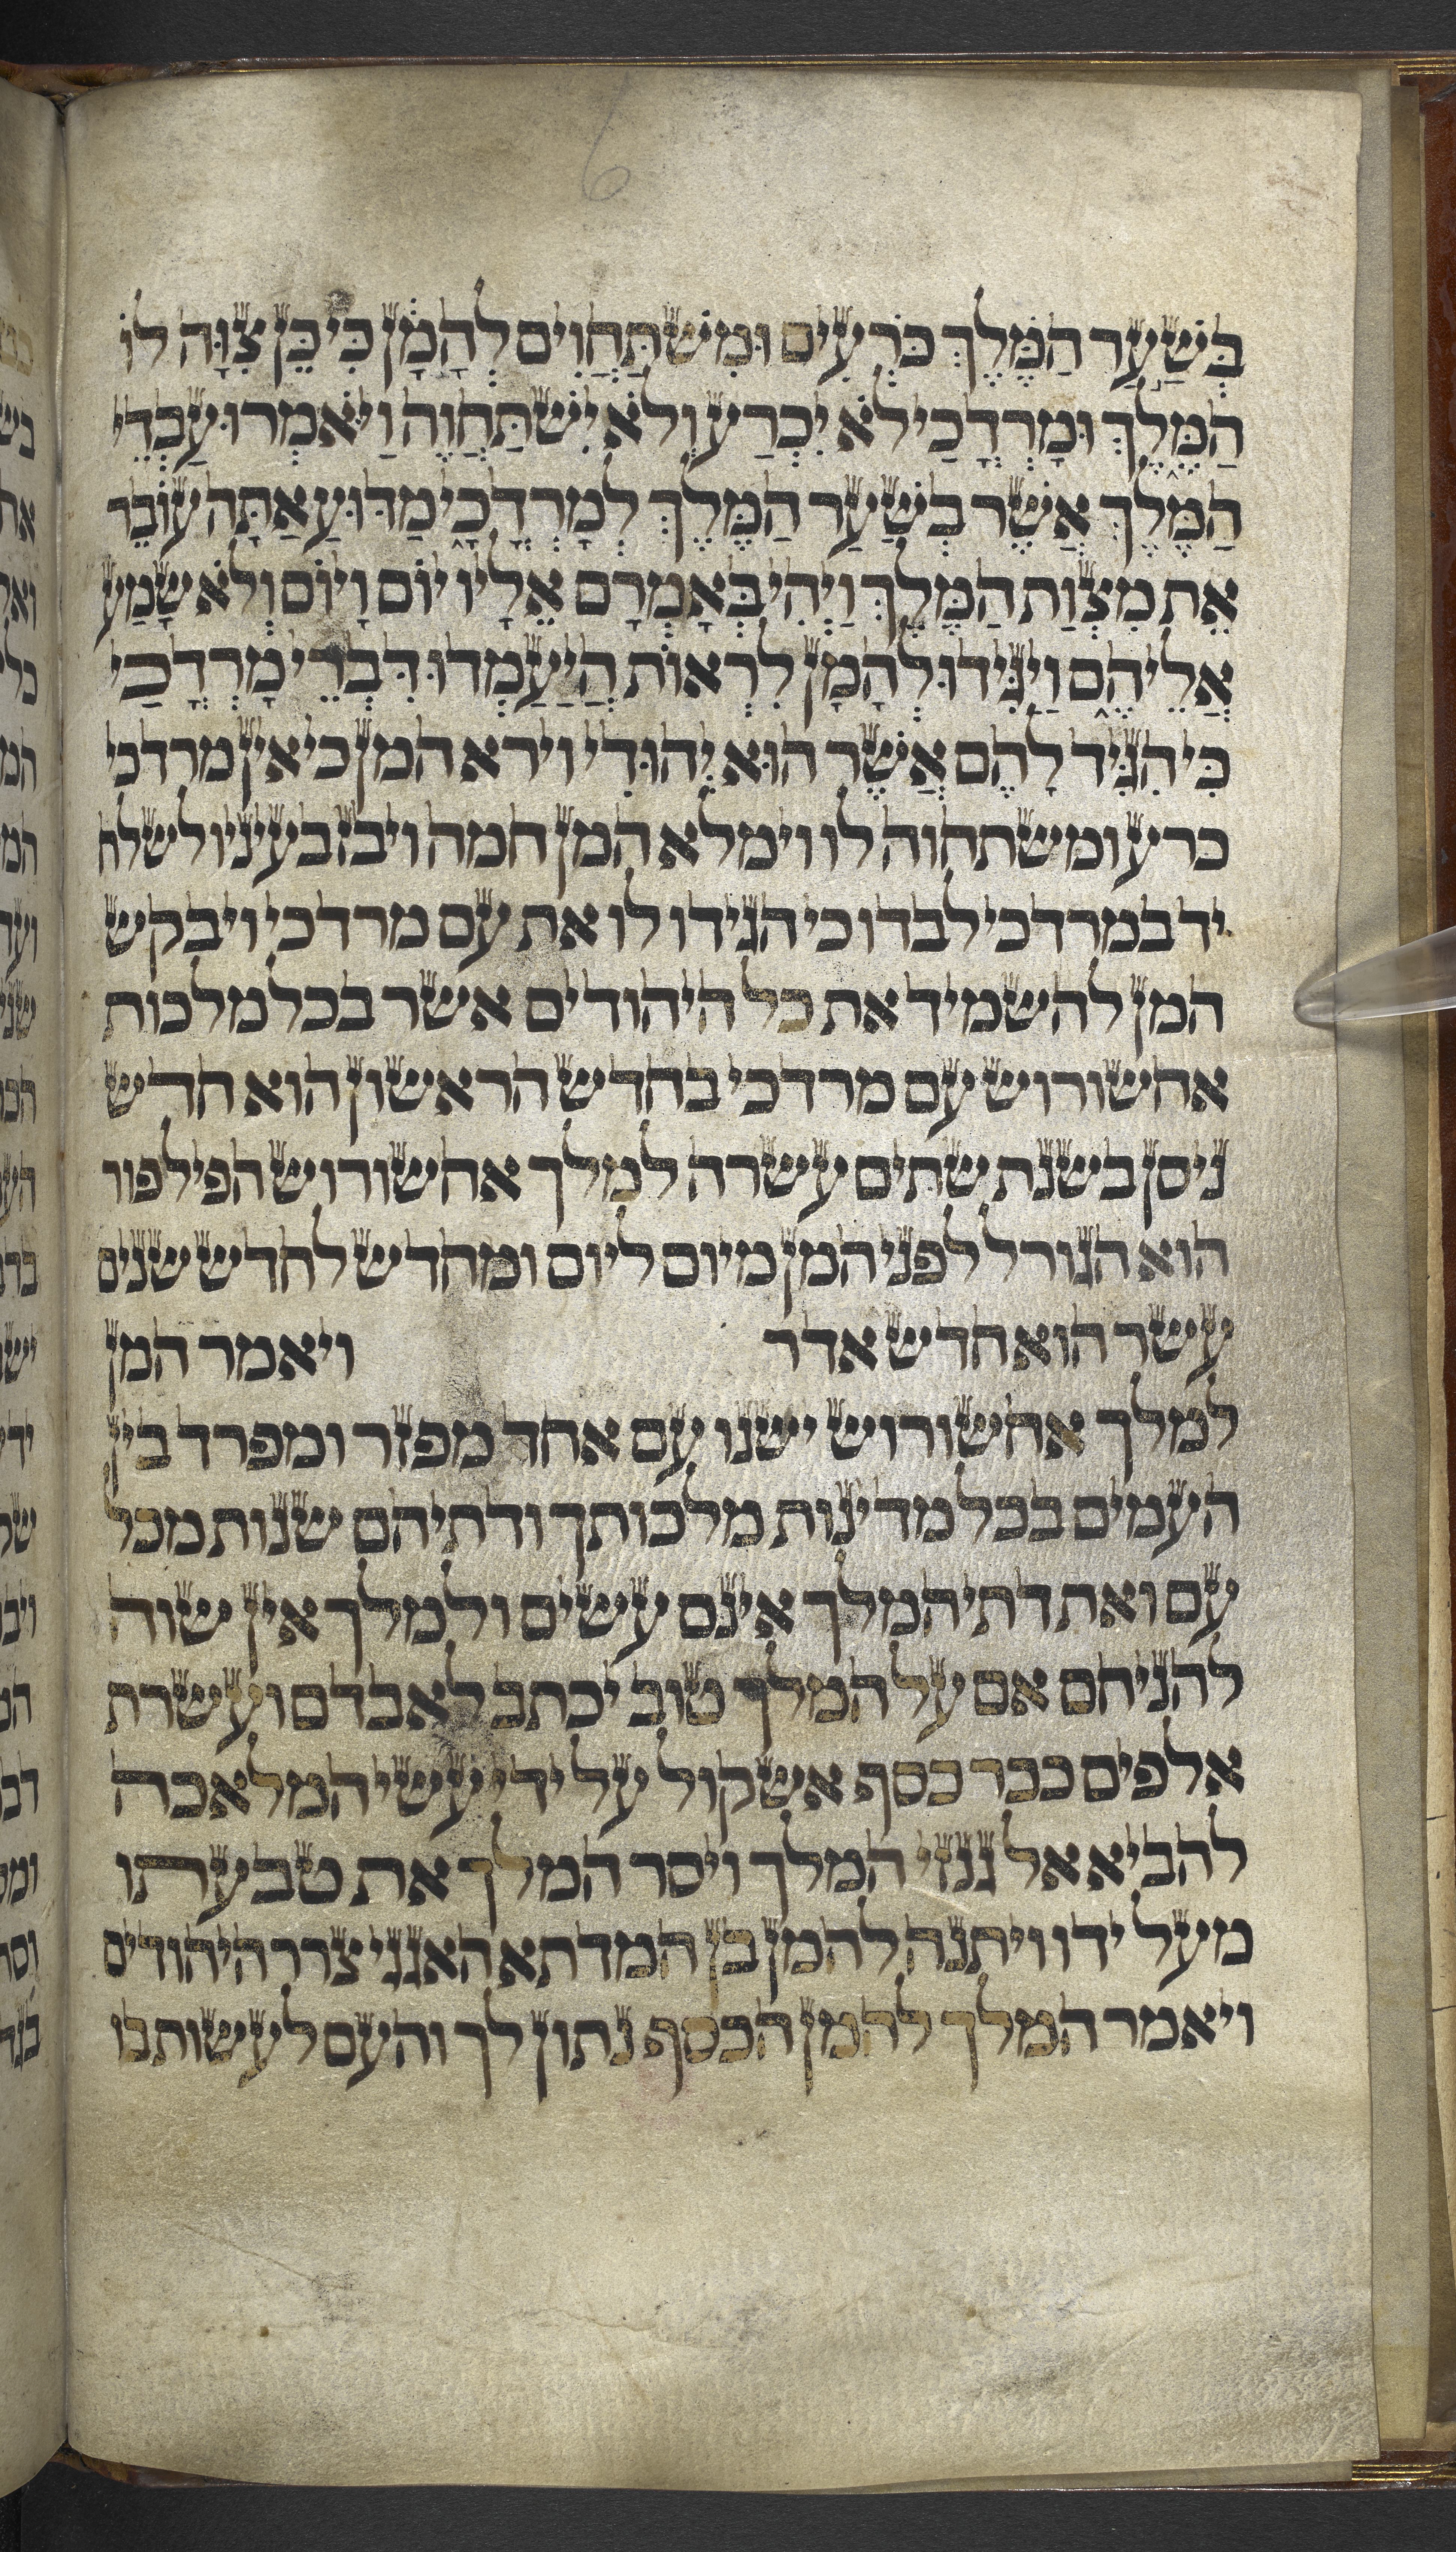 6
בְּשַׁעַר הַמֶּלֶךְ כֹּרְעִים וּמִשְׁתַּחֲוִים לְהָמָן כִּי כֵן צִוָּה לוֹ
הַמֶּלֶךְ וּמָרְדֳּכַי לֹא יִכְרַע וְלֹא יִשְׁתַּחֲוֶה וַיֹּאמְרוּ עַבְדֵי
הַמֶּלֶךְ אֲשֶׁר בְּשַׁעַר הַמֶּלֶךְ לְמָרְדֳּכָי מַדּוּעַ אַתָּה עוֹבֵר
אֵת מִצְוַת הַמֶּלֶךְ וַיְהִי בְּאָמְרָם אֵלָיו יוֹם וָיוֹם וְלֹא שָׁמַע
אֲלֵיהֶם וַיַּגִּידוּ לְהָמָן לִרְאוֹת הֲיַעַמְדוּ דִּבְרֵי מָרְדֳּכַי
כִּי הִגִּיד לָהֶם אֲשֶׁר הוּא יְהוּדִי וירא המן כי אין מרדכי
כרע ומשתחוה לו וימלא המן חמה ויבז בעיניו לשלח
יד במרדכי לבדו כי הגידו לו את עם מרדכי ויבקש
המן להשמיד את כל היהודים אשר בכל מלכות
אחשורוש עם מרדכי בחדש הראשון הוא חדש
ניסן בשנת שתים עשרה למלך אחשורוש הפיל פור
הוא הגורל לפני המן מיום ליום ומחדש לחדש שנים
עשר הוא חדש אדר ויאמר המן
למלך אחשורוש ישנו עם אחד מפזר ומפרד בין
העמים בכל מדינות מלכותך ודתיהם שנות מכל
עם ואת דתי המלך אינם עשים ולמלך אין שוה
להניחם אם על המלך טוב יכתב לאבדם ועשרת
אלפים ככר כסף אשקול על ידי עשי המלאכה
להביא אל גנזי המלך ויסר המלך את טבעתו
מעל ידו ויתנה להמן בן המדתא האגגי צרר היהודים
ויאמר המלך להמן הכסף נתון לך והעם לעשות בו